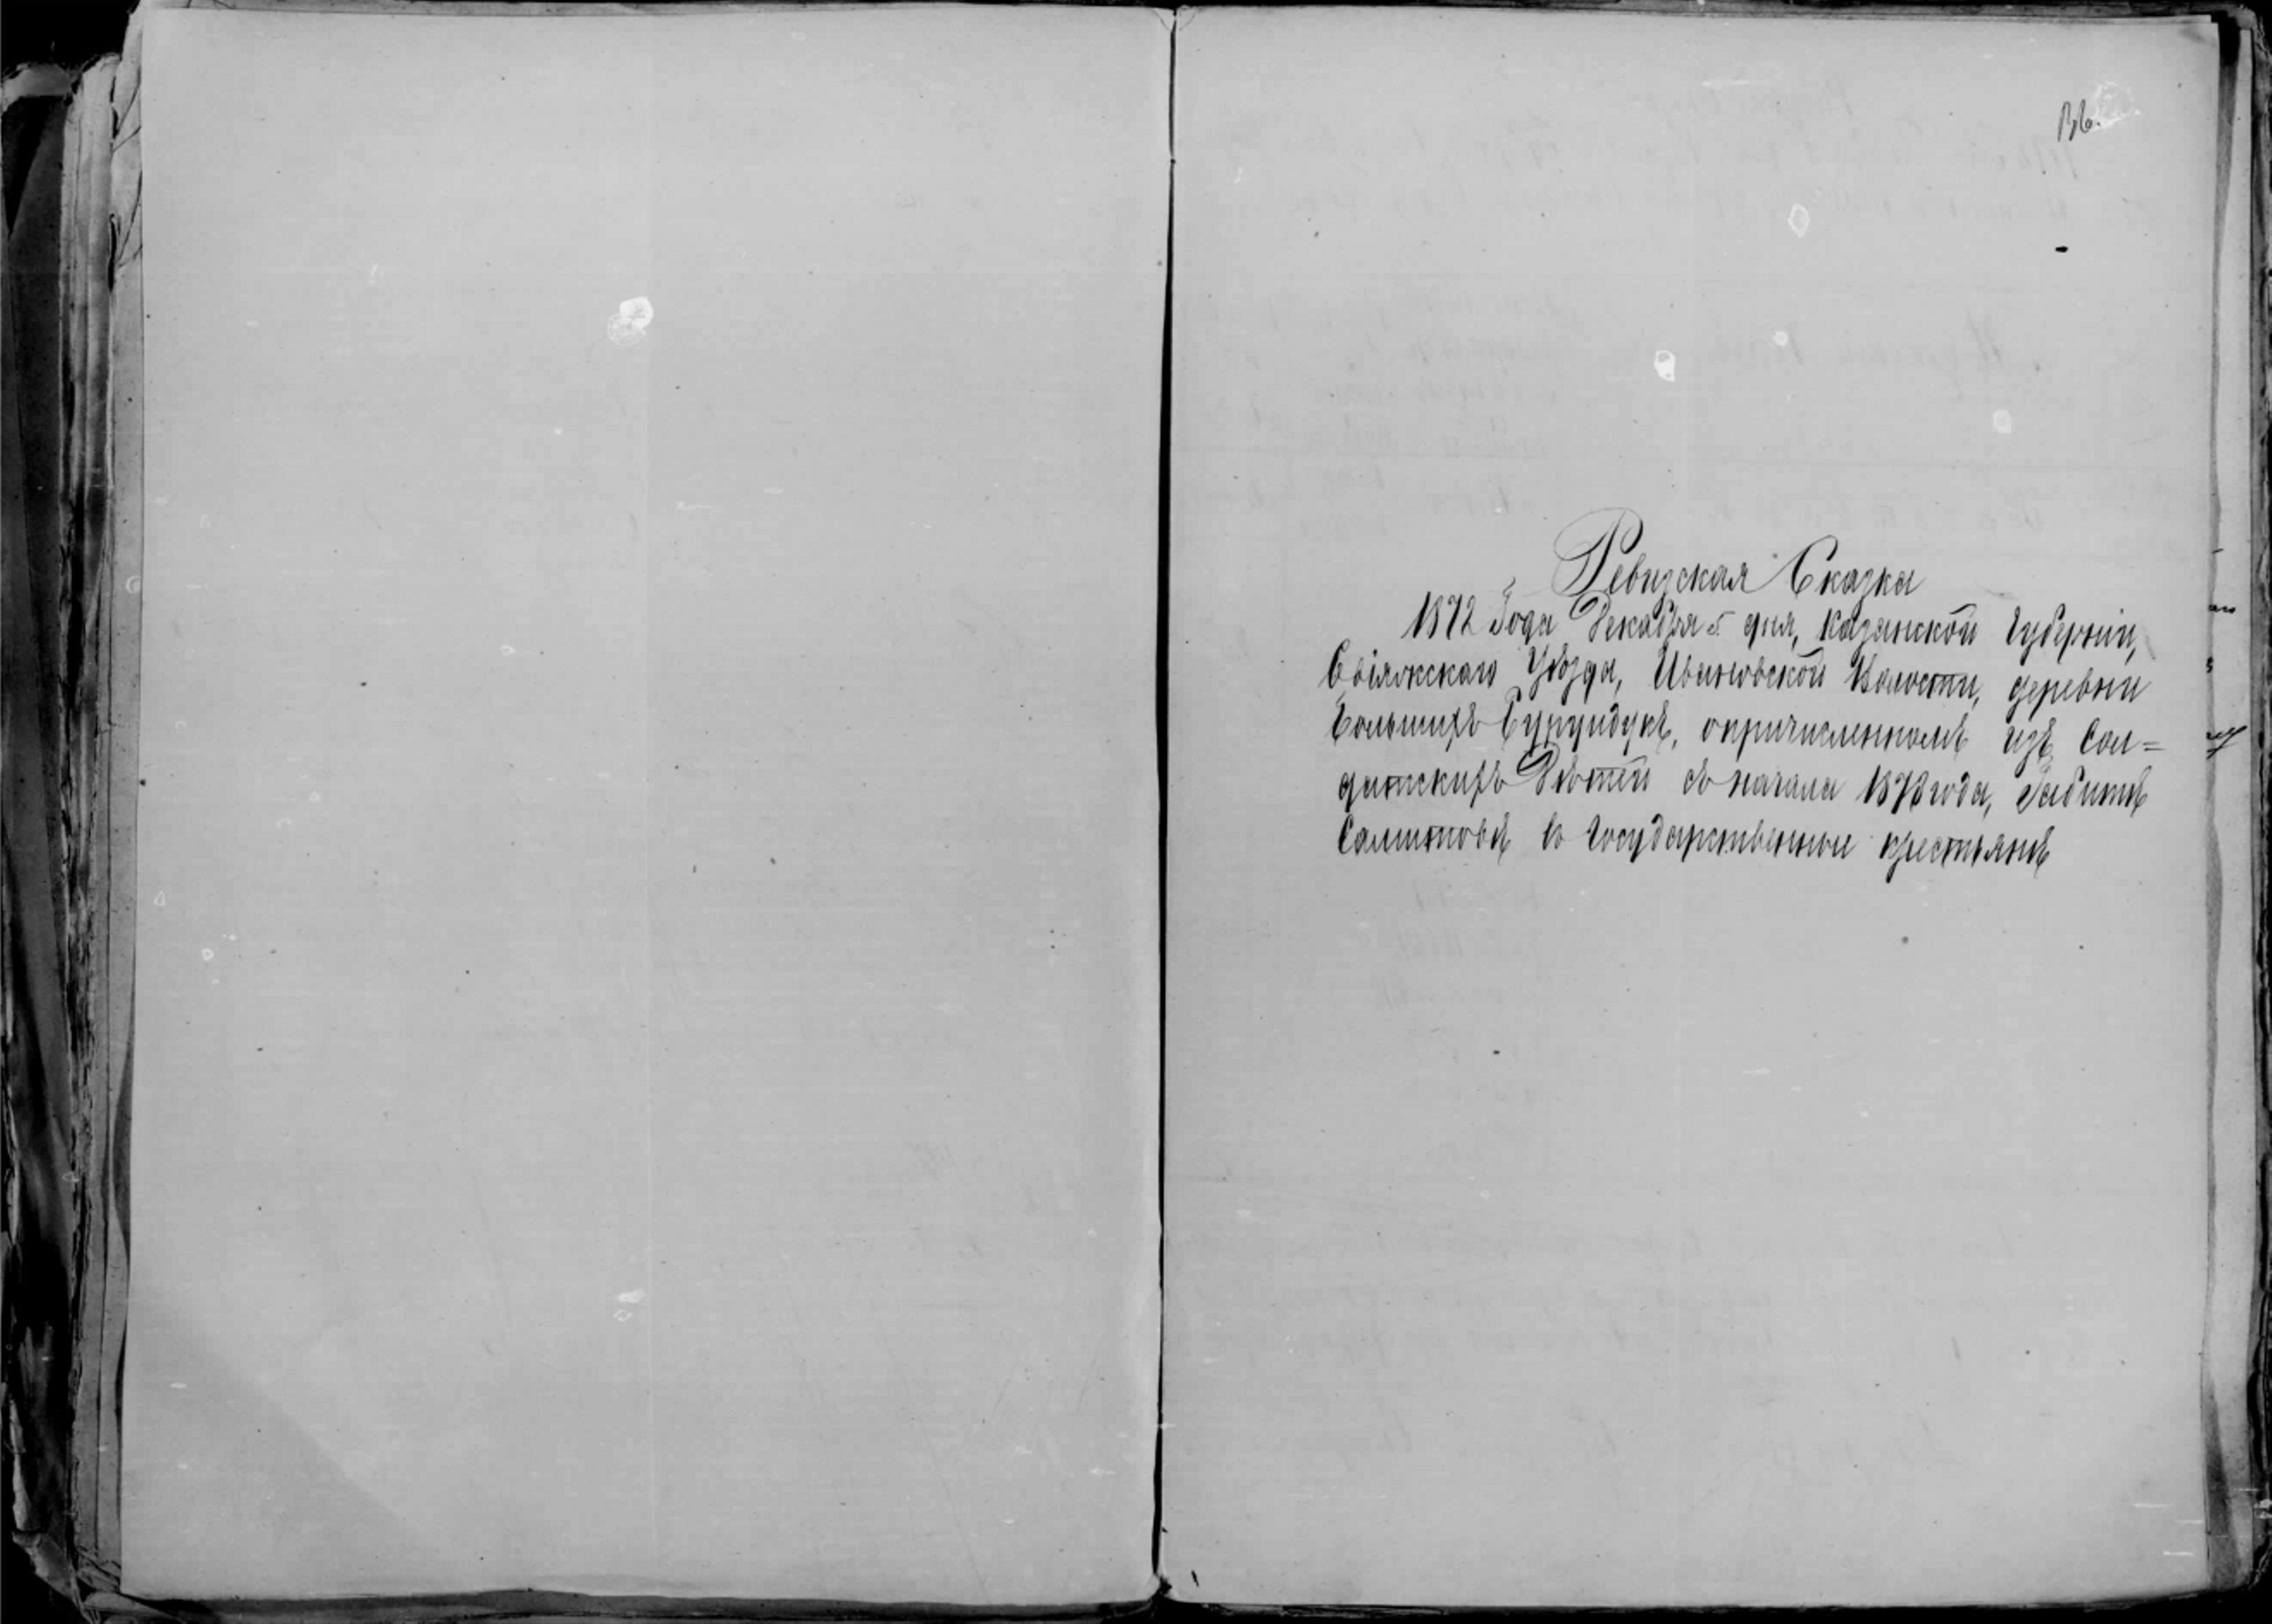 136.
Ревизская Сказка
1872 Года Декабря 5 дня, Казанской Губернии,
Свіяжскаго Уѣзда, Ивановской Волости, деревни
Большихъ о причисленномъ изъ Сол=
датскихъ Дѣтей съ начала 1873 года,
въ Государственные крестьянѣ